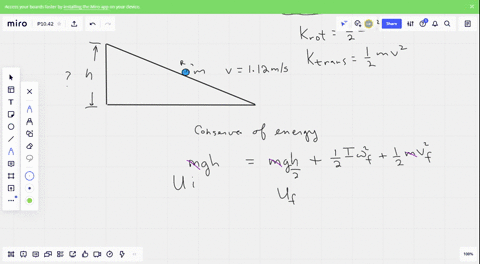 Access your boards faster by installing the Miro app on your device.
miro P10.42 Share
K_rot = /2
K_trans = 1/2 m v²
R m v = 1.12 m/s
? h
Conserve of energy
mgh = mgh/2 + 1/2 I ω_f² + 1/2 m v_f²
U i
U_f
100%